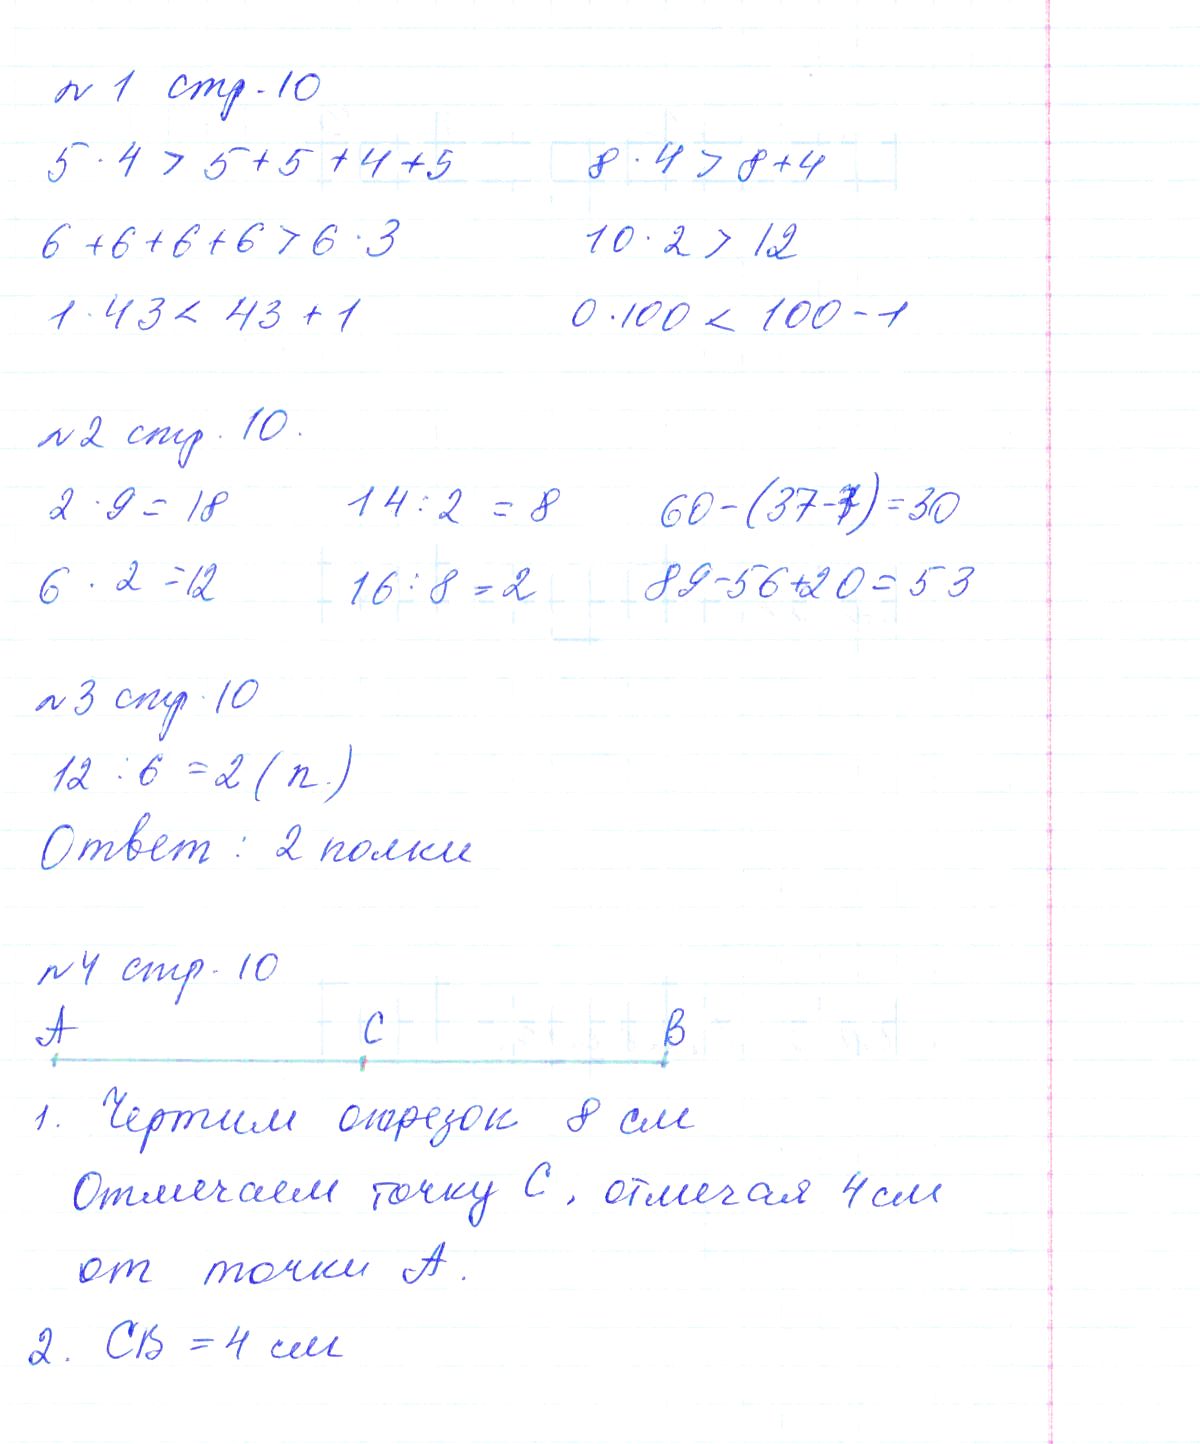 №1 стр. 10
5 · 4 > 5 + 5 + 4 + 5 8 · 4 > 8 + 4
6 + 6 + 6 + 6 > 6 · 3 10 · 2 > 12
1 · 43 < 43 + 1 0 · 100 < 100 - 1
№2 стр. 10.
2 · 9 = 18 14 : 2 = 8 60 - (37 - 7) = 30
6 · 2 = 12 16 : 8 = 2 89 - 56 + 20 = 53
№3 стр. 10
12 : 6 = 2 (п.)
Ответ : 2 полки
№4 стр. 10
А С В
1. Чертим отрезок 8 см
Отмечаем точку С, отмечая 4 см
от точки А.
2. СВ = 4 см